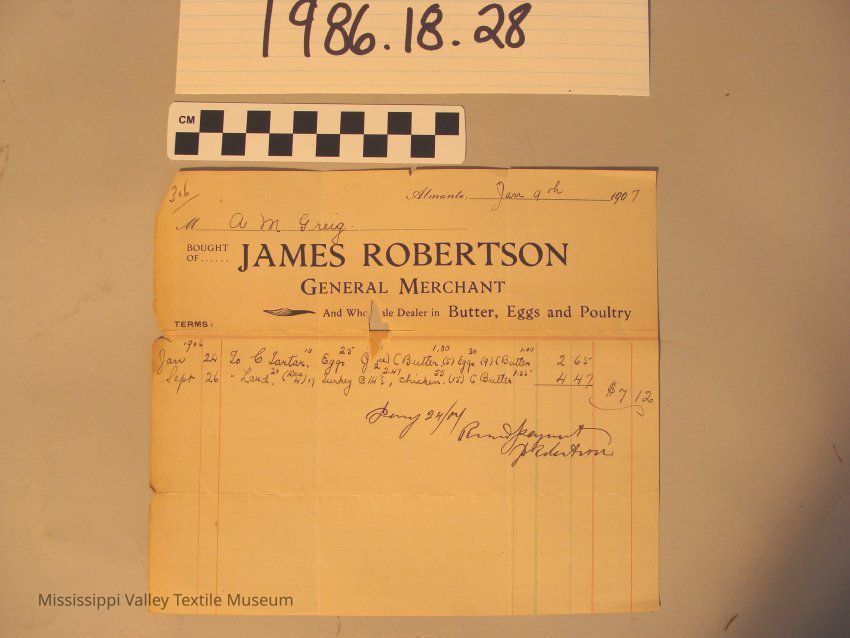 1986.18.28
CM
306
Almonte, Jan 9th 1907
M A M Greig.
BOUGHT OF...... JAMES ROBERTSON
GENERAL MERCHANT
And Wholesale Dealer in Butter, Eggs and Poultry
TERMS:
1906
Jan 24 To C Tartar, 10 Eggs 25 C Butter 1.00 (5) Eggs 30 (4) C Butter 1.00 2 65
Sept 26 " Lard, 20 Turkey @ 14¢ 2.47, Chicken, 55 (5) C Butter 1.25 4 47 $7 12
24/07
Payment
J Robertson
Mississippi Valley Textile Museum